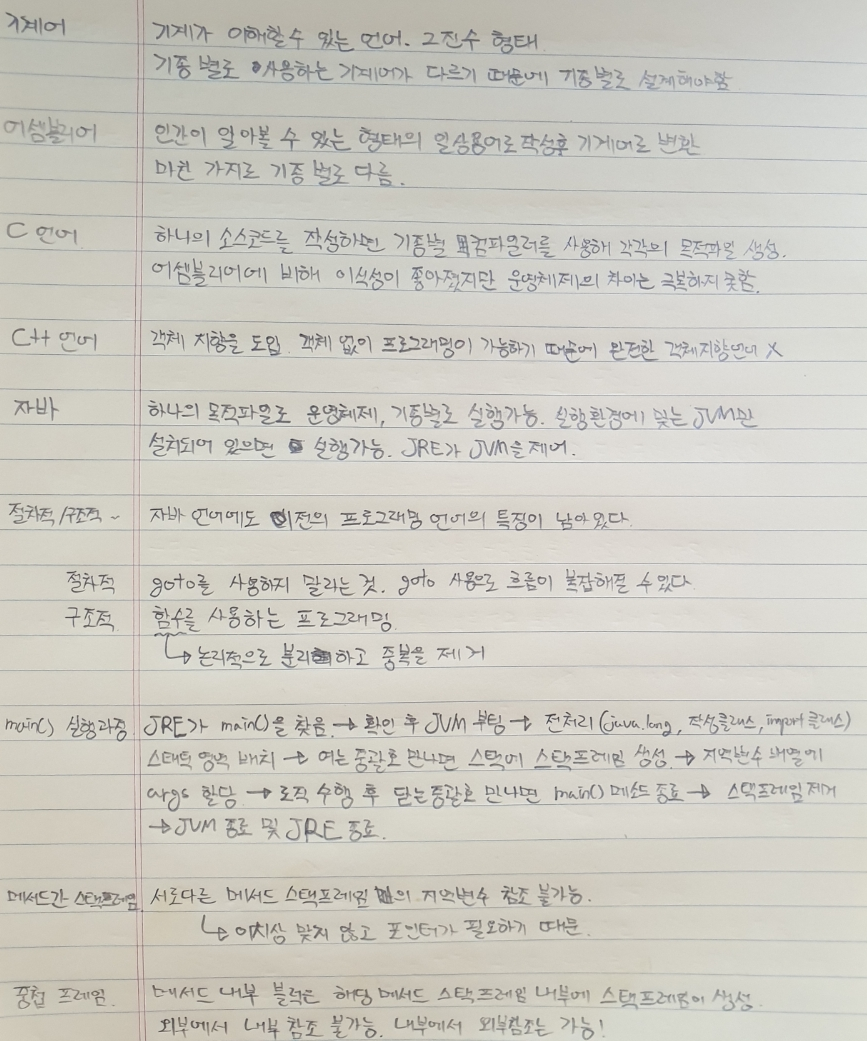 기계어 기계가 이해할 수 있는 언어. 2진수 형태
기종 별로 사용하는 기계어가 다르기 때문에 기종별로 설계해야함
어셈블리어 인간이 알아볼 수 있는 형태의 일상용어로 작성후 기계어로 변환
마찬 가지로 기종 별로 다름.
C 언어 하나의 소스코드를 작성하면 기종별 컴파일러를 사용해 각각의 목적파일 생성.
어셈블리어에 비해 이식성이 좋아졌지만 운영체제의 차이는 극복하지 못함.
C++ 언어 객체 지향을 도입. 객체 없이 프로그래밍이 가능하기 때문에 완전한 객체지향언어 X
자바 하나의 목적파일로 운영체제, 기종별로 실행가능. 실행환경에 맞는 JVM만
설치되어 있으면 실행가능. JRE가 JVM을 제어.
절차적/구조적 ~ 자바 언어에도 이전의 프로그래밍 언어의 특징이 남아있다.
절차적 goto를 사용하지 말라는 것. goto 사용으로 흐름이 복잡해질 수 있다.
구조적 함수를 사용하는 프로그래밍.
↳ 논리적으로 분리하고 중복을 제거
main() 실행과정 JRE가 main()을 찾음 → 확인 후 JVM 부팅 → 전처리 (java.lang, 작성클래스, import 클래스)
스태틱 영역 배치 → 여는 중괄호 만나면 스택에 스택프레임 생성 → 지역변수 배열에
args 할당 → 로직 수행 후 닫는중괄호 만나면 main() 메소드 종료 → 스택프레임 제거
→ JVM 종료 및 JRE 종료.
메서드간 스택프레임 서로다른 메서드 스택프레임 의 지역변수 참조 불가능.
↳ 이치상 맞지 않고 포인터가 필요하기 때문.
중첩 프레임. 메서드 내부 블럭은 해당 메서드 스택프레임 내부에 스택프레임이 생성.
외부에서 내부 참조 불가능. 내부에서 외부참조는 가능!